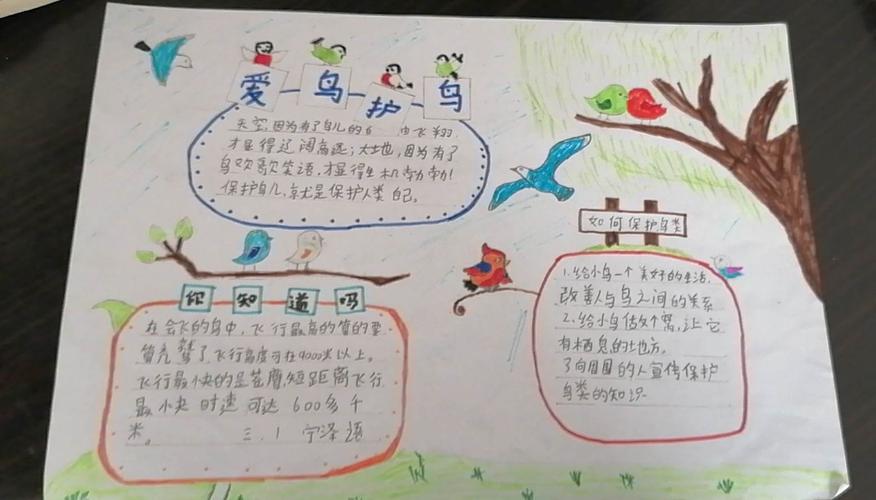 爱鸟护鸟
天空,因为有了鸟儿的自由飞翔,
才显得辽阔高远;大地,因为有了
鸟欢歌笑语,才显得生机勃勃!
保护鸟儿,就是保护人类自己。
你知道吗
在会飞的鸟中,飞行最高的
飞行高度可在9000米以上。
飞行最快的是苍鹰短距离飞行
最小快时速可达600多千
米。 三.1 宁泽语
如何保护鸟类
1.给小鸟一个美好的生活,
改善人与鸟之间的关系
2.给小鸟估个窝,让它
有栖息的地方。
3向周围的人宣传保护
鸟类的知识